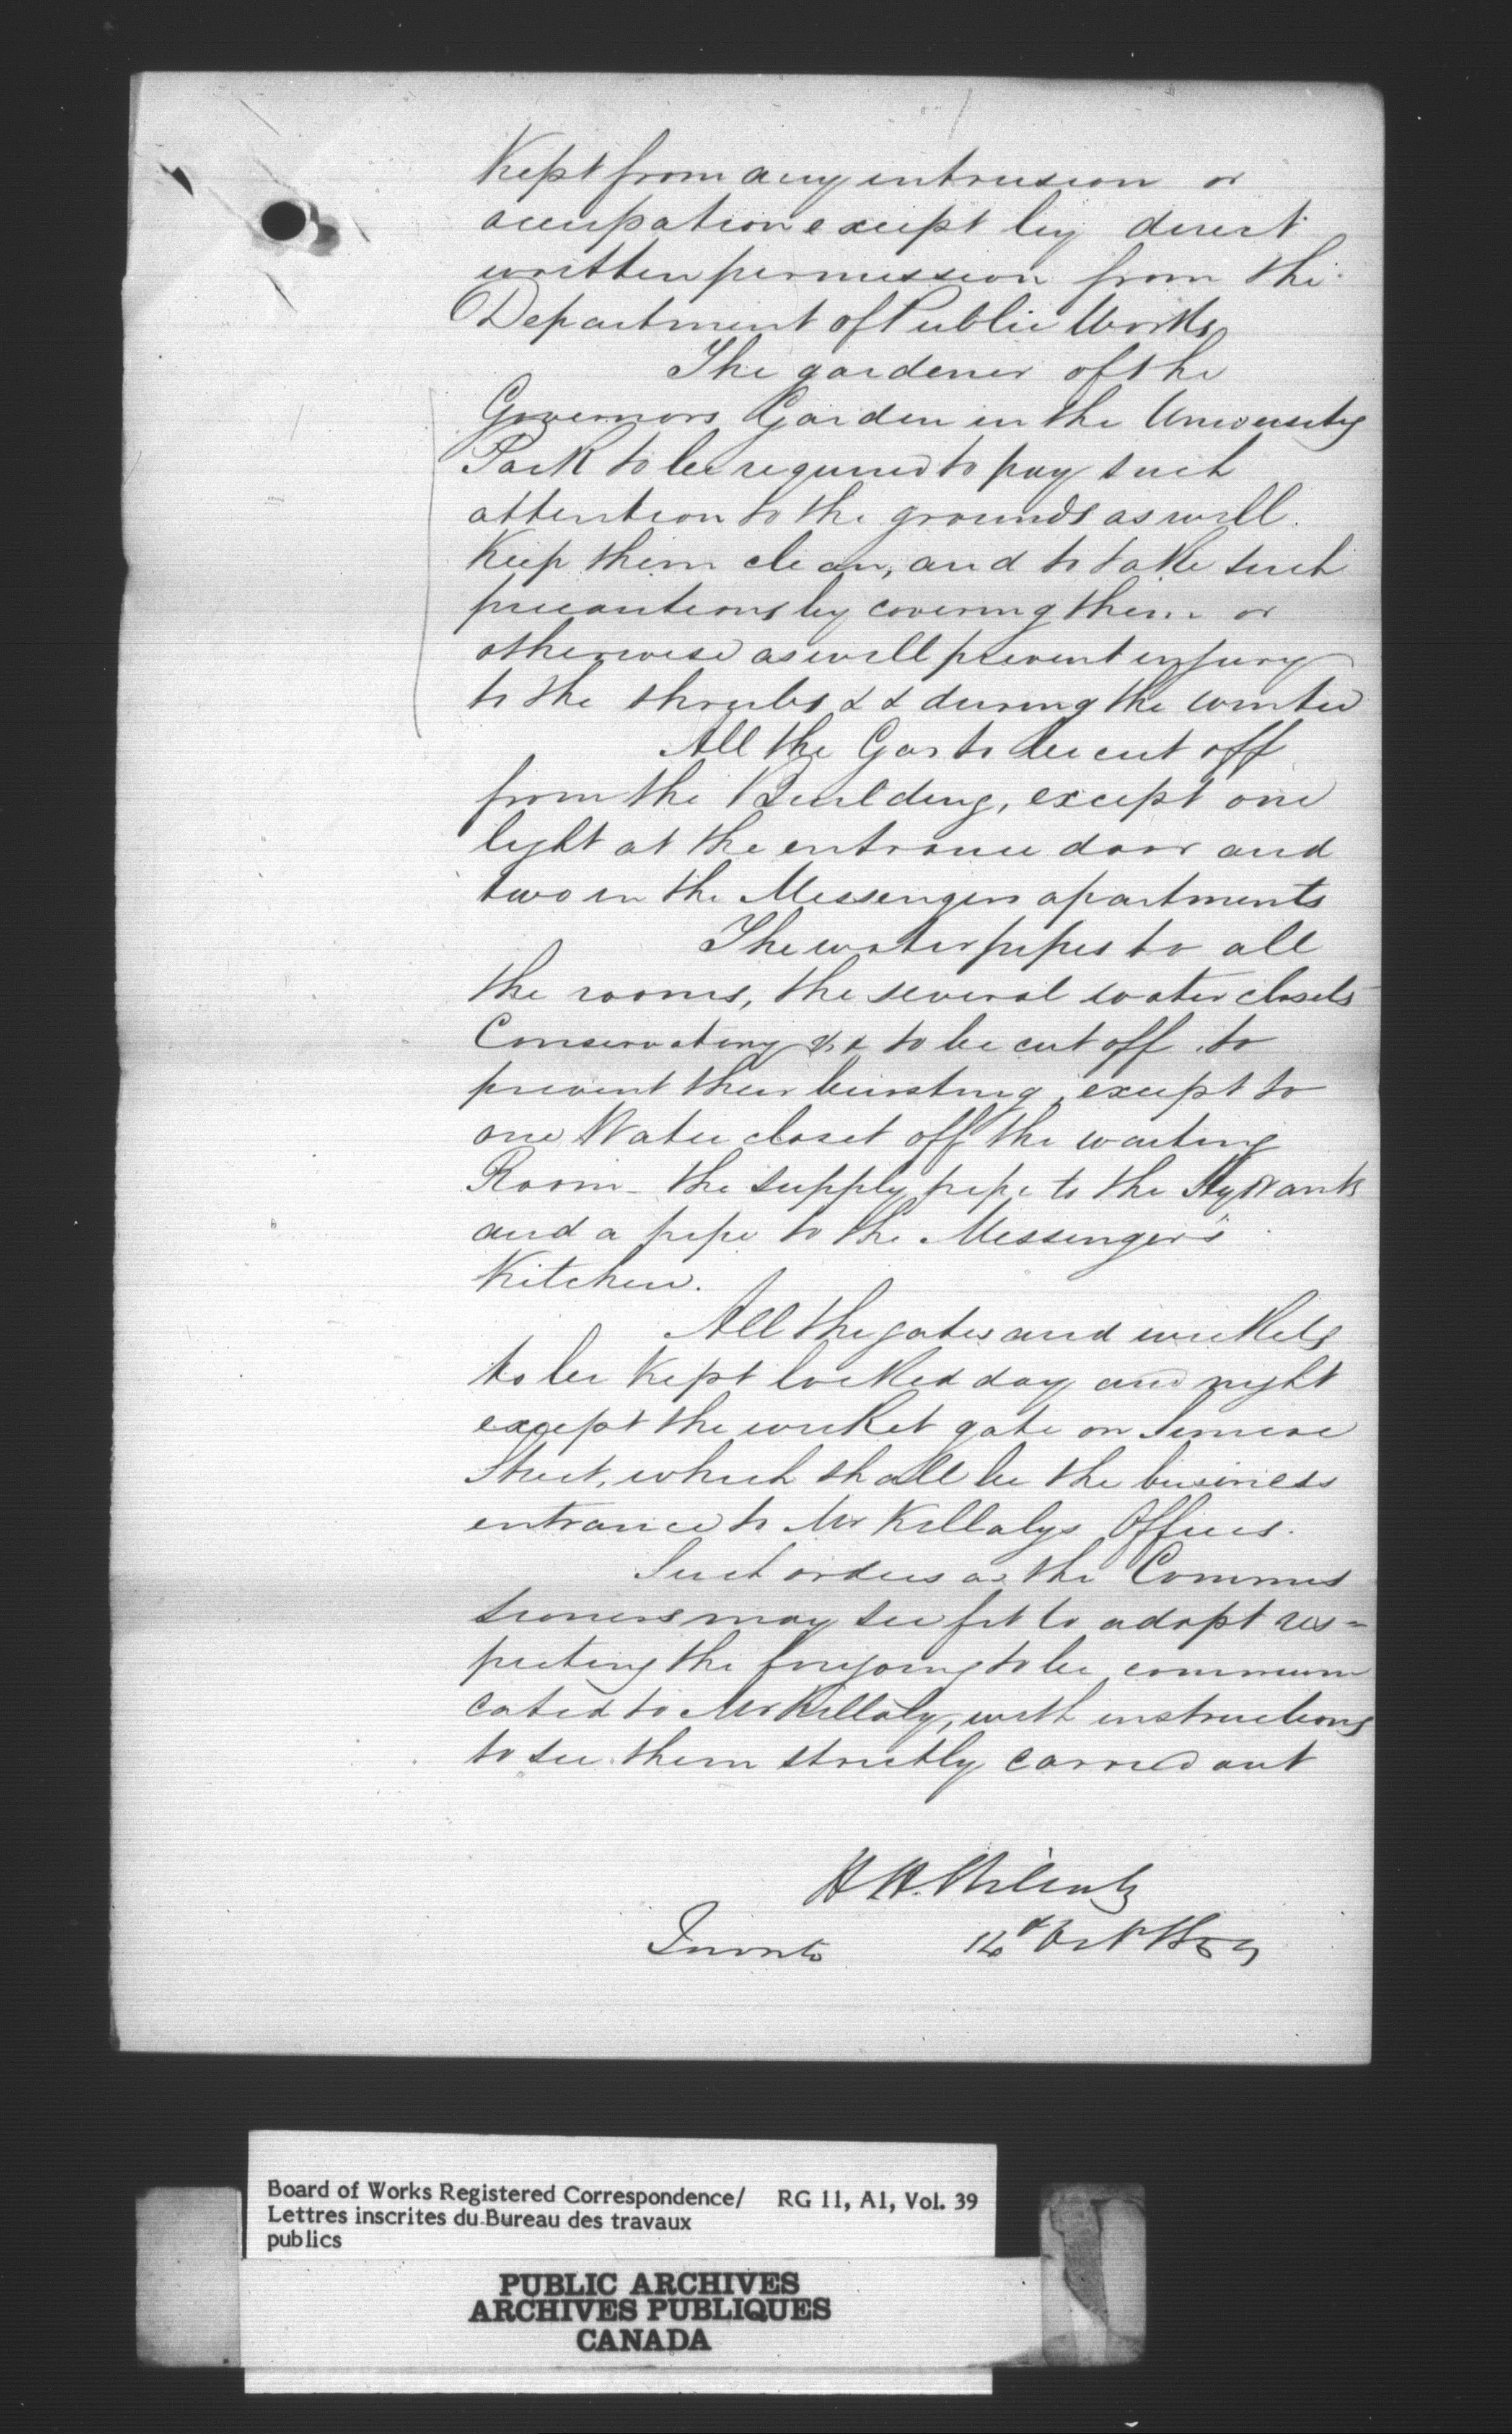 Kept from any intrusion or
occupation except by direct
written permission from the
Department of Public Works
The gardener of the
Governors Garden in the University
Park to be required to pay such
attention to the grounds as will
Keep them clean, and to take such
precautions by covering them or
otherwise as will prevent injury
to the shrubs & & during the winter
All the Gas to be cut off
from the Building, except one
light at the entrance door and
two in the Messengers apartments
The water pipes to all
the rooms, the several water closets
Conservatory & & to be cut off to
prevent their bursting, except to
one Water closet off the waiting
Room - the supply pipe to the Hydrants
and a pipe to the Messenger's
Kitchen.
All the gates and wickets
to be Kept locked day and night
except the wicket gate on Simcoe
Street, which shall be the business
entrance to Mr Killalys Offices.
Such orders as the Commis
sioners may see fit to adopt res=
pecting the foregoing to be communi
cated to Mr Killaly, with instructions
to see them strictly carried out
Toronto
Board of Works Registered Correspondence/ RG 11, A1, Vol. 39
Lettres inscrites du Bureau des travaux
publics
PUBLIC ARCHIVES
ARCHIVES PUBLIQUES
CANADA